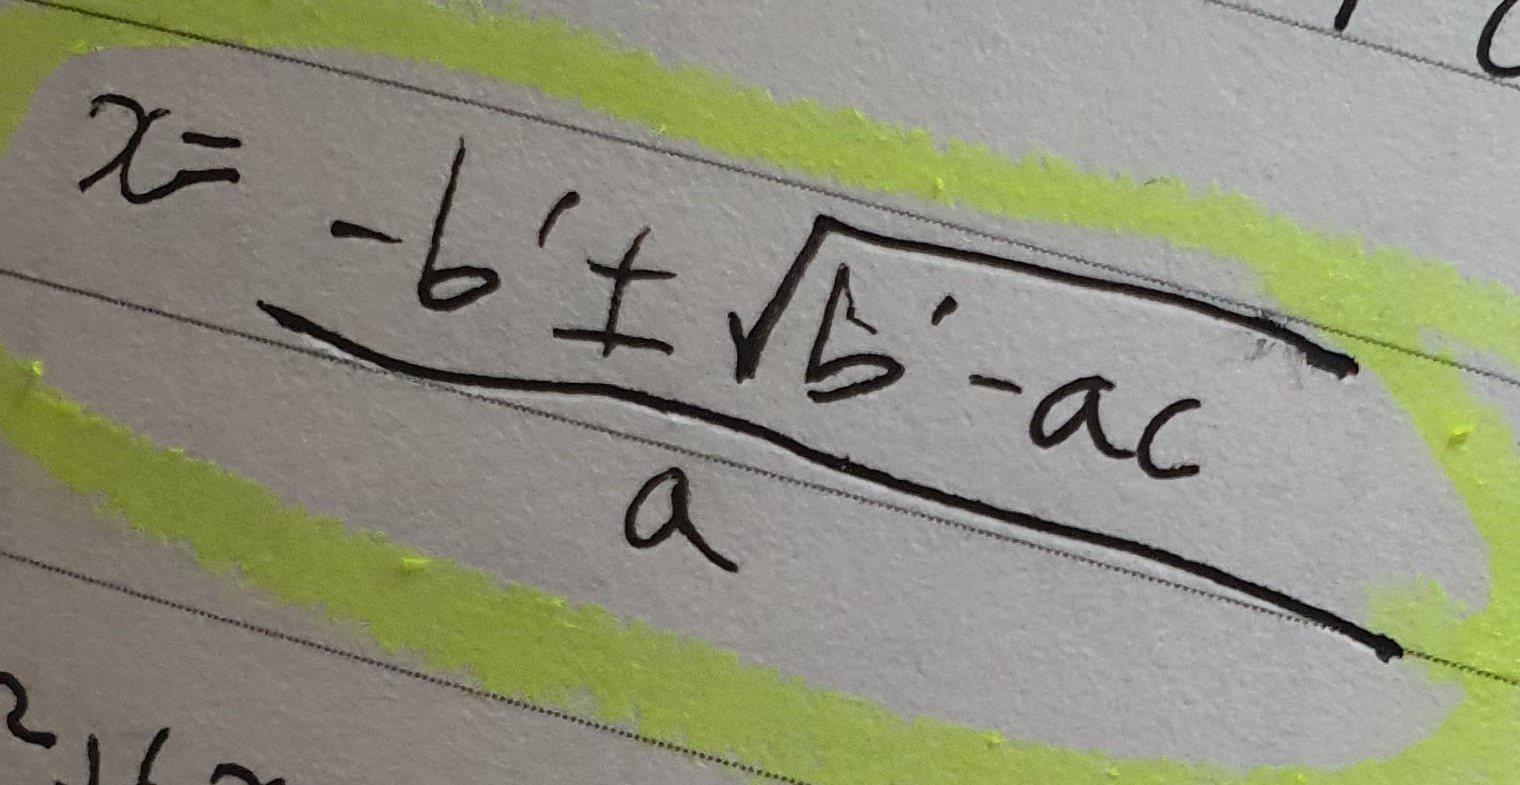 x = -b' ± √b' - ac
a